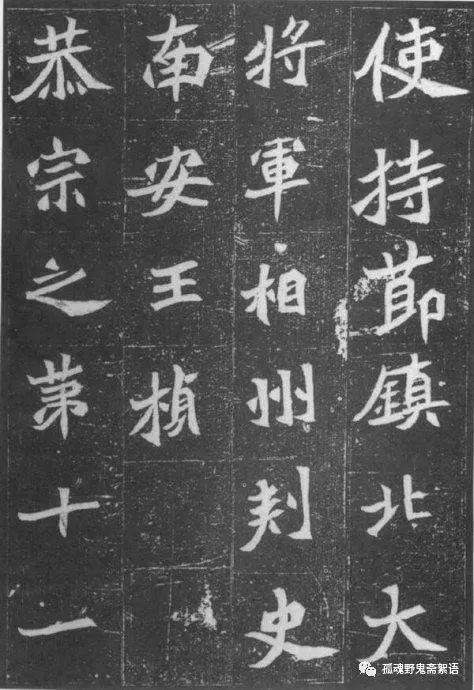 使持莭鎮北大
將軍相州刾史
南安王楨
恭宗之苐十一
孤魂野鬼斋絮语